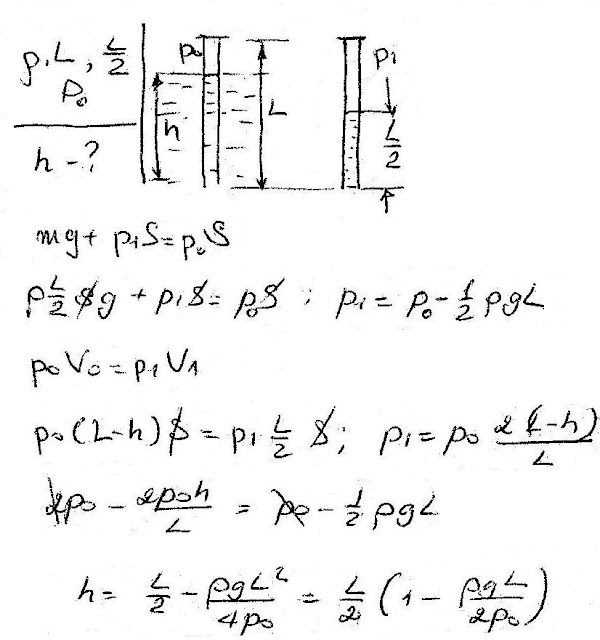 ρ, L, L/2
p₀
h - ?
p₀
h
L
p₁
L/2
mg + p₁S = p₀S
ρ L/2 Sg + p₁S = p₀S ; p₁ = p₀ - 1/2 ρgL
p₀V₀ = p₁V₁
p₀(L-h)S = p₁ L/2 S; p₁ = p₀ 2(L-h)/L
2p₀ - 2p₀h/L = p₀ - 1/2 ρgL
h = L/2 - ρgL²/4p₀ = L/2 (1 - ρgL/2p₀)